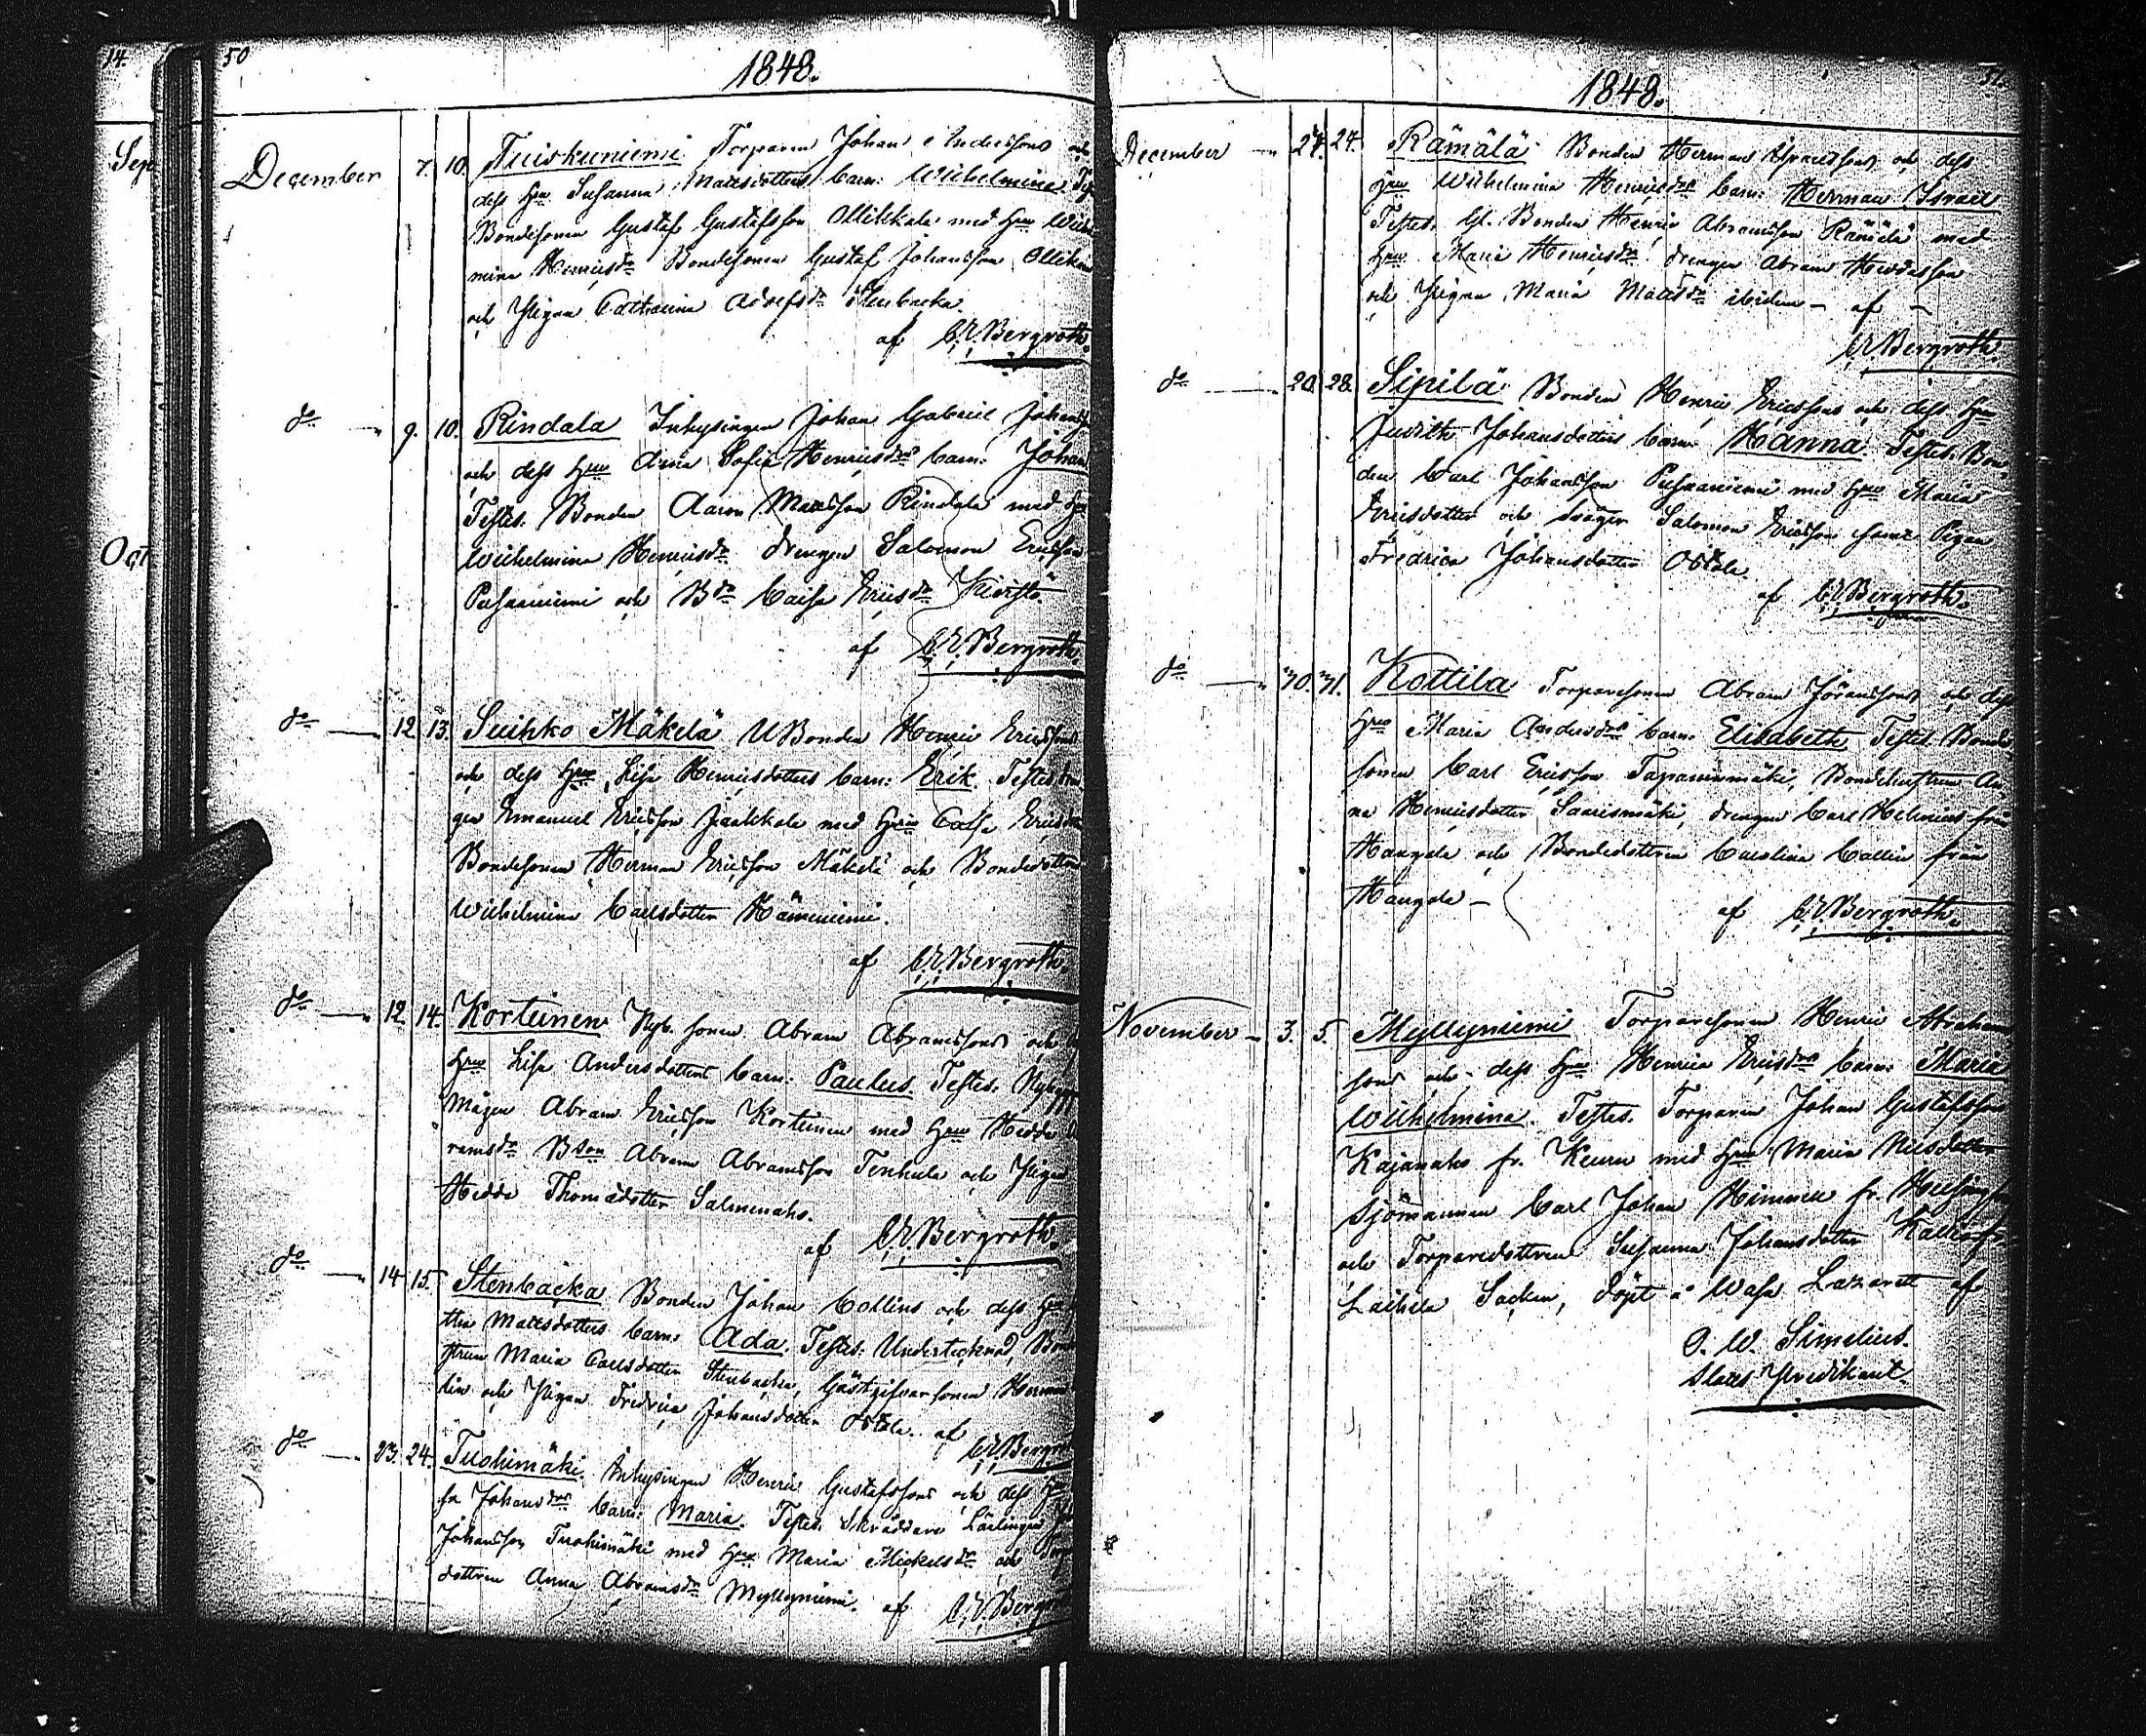 14.
Sep
Oct
50
1848.
December 7. 10. Tuiskuniemi Torparen Johan Anderssons och
dess Hru Susanna Mattsdotters barn: Wilhelmina. Test
Bondesonen Gustaf Gustafsson Ollikkala med Hru Wilhel
mina Henricsdr Bondesonen Gustaf Johansson Ollikka
och Pigan Catharina Adolfsdr Stenbacka.
af C.E. Bergroth.
do 9. 10. Rindala Inhysingen Johan Gabriel Johans
och dess Hru Anna Sofia Henricsdrs barn: Johan
Testes. Bonden Aaron Mattsson Rindala med Hru
Wilhelmina Henricsdr drengen Salomon Ericsson
Pusaaniemi och Bdr Caisa Ericsdr
af C.E. Bergroth.
do 12. 13. Suihko Mäkelä UBonden Henric Ericssons
och dess Hru Lisa Henricsdotters barn: Erik. Testes dren
gen Emanuel Ericsson Jaakkola med Hru Caisa Ericsdr
Bondesonen Herman Ericsson Mäkelä och Bondedottren
Wilhelmina Carlsdotter Hämeniemi.
af C.E. Bergroth.
do 12. 14. Korteinen Nyb. sonen Abram Abramssons och
Hru Lisa Andersdotters barn: Paulus. Testes. Nybygg
mågen Abram Ericsson Korteinen med Hru Hedda Ab
ramsdr Bson Abram Abramsson Tenhula och Pigan
Hedda Thomasdotter Salmenaho.
af C.E. Bergroth.
do 14. 15. Stenbacka Bonden Johan Collins och dess Hru
Mattsdotters barn: Ada. Testes. Undertecknad, Bond
strun Maria Carlsdotter Stenbacka, Gästgifvarsonen Herman
lin och Pigan Fredrica Johansdotter Ostola. af C.E. Bergroth
do 23. 24. Tuohimäki. Inhysingen Henric Gustafssons och dess Hru
sa Johansdrs barn: Maria. Testes. Skräddare Lärlingen
Johansson Tuohimäki med Hru Maria Mickelsdr och Torp
dottren Anna Abramsdr Myllyniemi. af C.E. Bergroth
51.
1848.
December 24. 24. Rämälä Bonden Herman Israelssons och dess
Hru Wilhelmina Henricsdrs barn: Herman Israel
Testes. Gl. Bonden Henric Abramsson Rämälä med
Hru Maria Henricsdr. drengen Abram
och Pigan Maria Mattsdr ibidem – af –
C.E. Bergroth.
do 20. 28. Sipilä Bonden Henric Ericssons och dess Hru
Judith Johansdotters barn: Hanna. Testes. Bon
den Carl Johansson Pusaaniemi med Hru Maria
Ericsdotter och Salomon Ericsson samt Pigan
Fredrica Johansdotter Ostola.
af C.E. Bergroth.
do 30. 31. Kottila Torparesonen Abram Göranssons och dess
Hru Maria Andersdrs barn: Elisabeth. Testes. Bonde
sonen Carl Ericsson Tapaninmäki, Bondehustrun An
na Henricsdotter Saarismäki, drengen Carl Helenius från
Kaugala och Bondedottren Carolina Collin från
Kaugala – af C.E. Bergroth.
November 3. 5. Myllyniemi Torparesonen Henric Abraham
sons och dess Hru Henrica Ericsdrs barn: Maria
Wilhelmina. Testes. Torparen Johan Gustafsson
Kajanaho fr. Keuru med Hru Maria Nilsdotter
Sjömannen Carl Johan Himmen fr. Helsingfors
och Torparedottren Susanna Johansdotter
Laihela Socken, döpt å Wasa Lazarett af
O. W. Simelius.
Slotts Predikant.